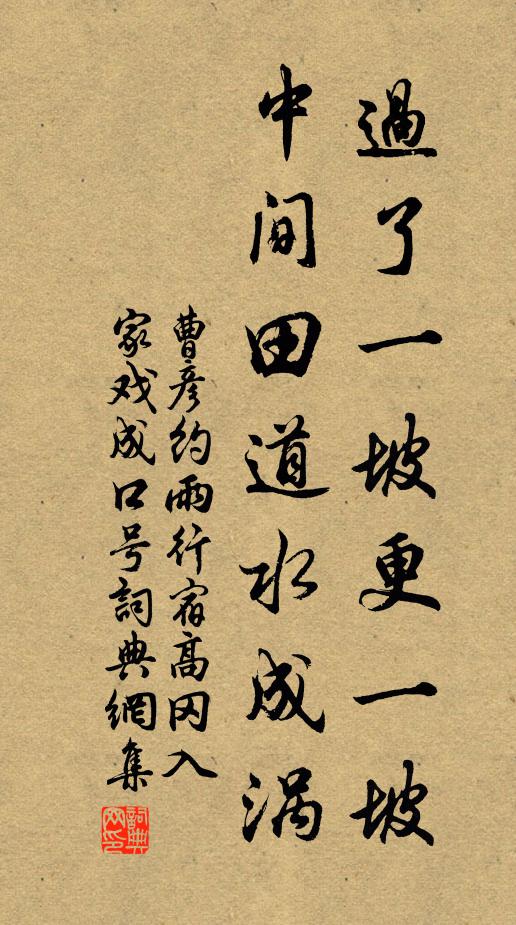 過了一坡更一坡
中间田道水成涡
曹彦约雨行宿高冈入
家戏成口号詞典網集
詞典网印